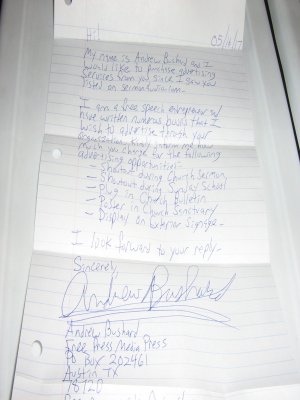 Hi
My name is Andrew Bushard and I
would like to purchase advertising
services from you since I saw you
listed on
I am a free speech entrepreneur w/
have written numerous books that I
wish to advertise through your
organization. Kindly inform me how
much you charge for the following
advertising opportunities-
- Shoutout during Church Sermon
- Shoutout during Sunday School
- Plug in Church Bulletin
- Poster in Church Sanctuary
- Display on Exterior Signage.
I look forward to your reply.
Sincerely,
Andrew Bushard
Andrew Bushard
Free Press Media Press
PO Box 202461
Austin TX
78720